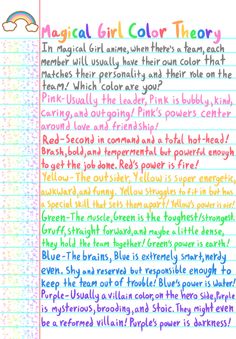 Magical Girl Color Theory
In Magical Girl anime, when there's a team, each
Member will usually have their own color that
Matches their personality and their role on the
team! Which color are you?
Pink-Usually the leader, Pink is bubbly, kind,
Caring, and outgoing! Pink's powers center
around love and friendship!
Red-Second in command and a total hot-head!
Brash, bold, and tempermental but powerful enough
to get the job done. Red's power is fire!
Yellow-The outsider, Yellow is super energetic,
awkward, and funny. Yellow struggles to fit in but has
a special skill that sets them apart! Yellow's power is air!
Green-The muscle, Green is the toughest/strongest.
Gruff, straight forward, and maybe a little dense,
they hold the team together! Green's power is earth!
Blue-The brains, Blue is extremely smart, nerdy
even. Shy and reserved but responsible enough to
keep the team out of trouble! Blue's power is water!
Purple-Usually a villain color, on the hero side, Purple
is mysterious, brooding, and Stoic. They might even
be a reformed villain! Purple's power is darkness!